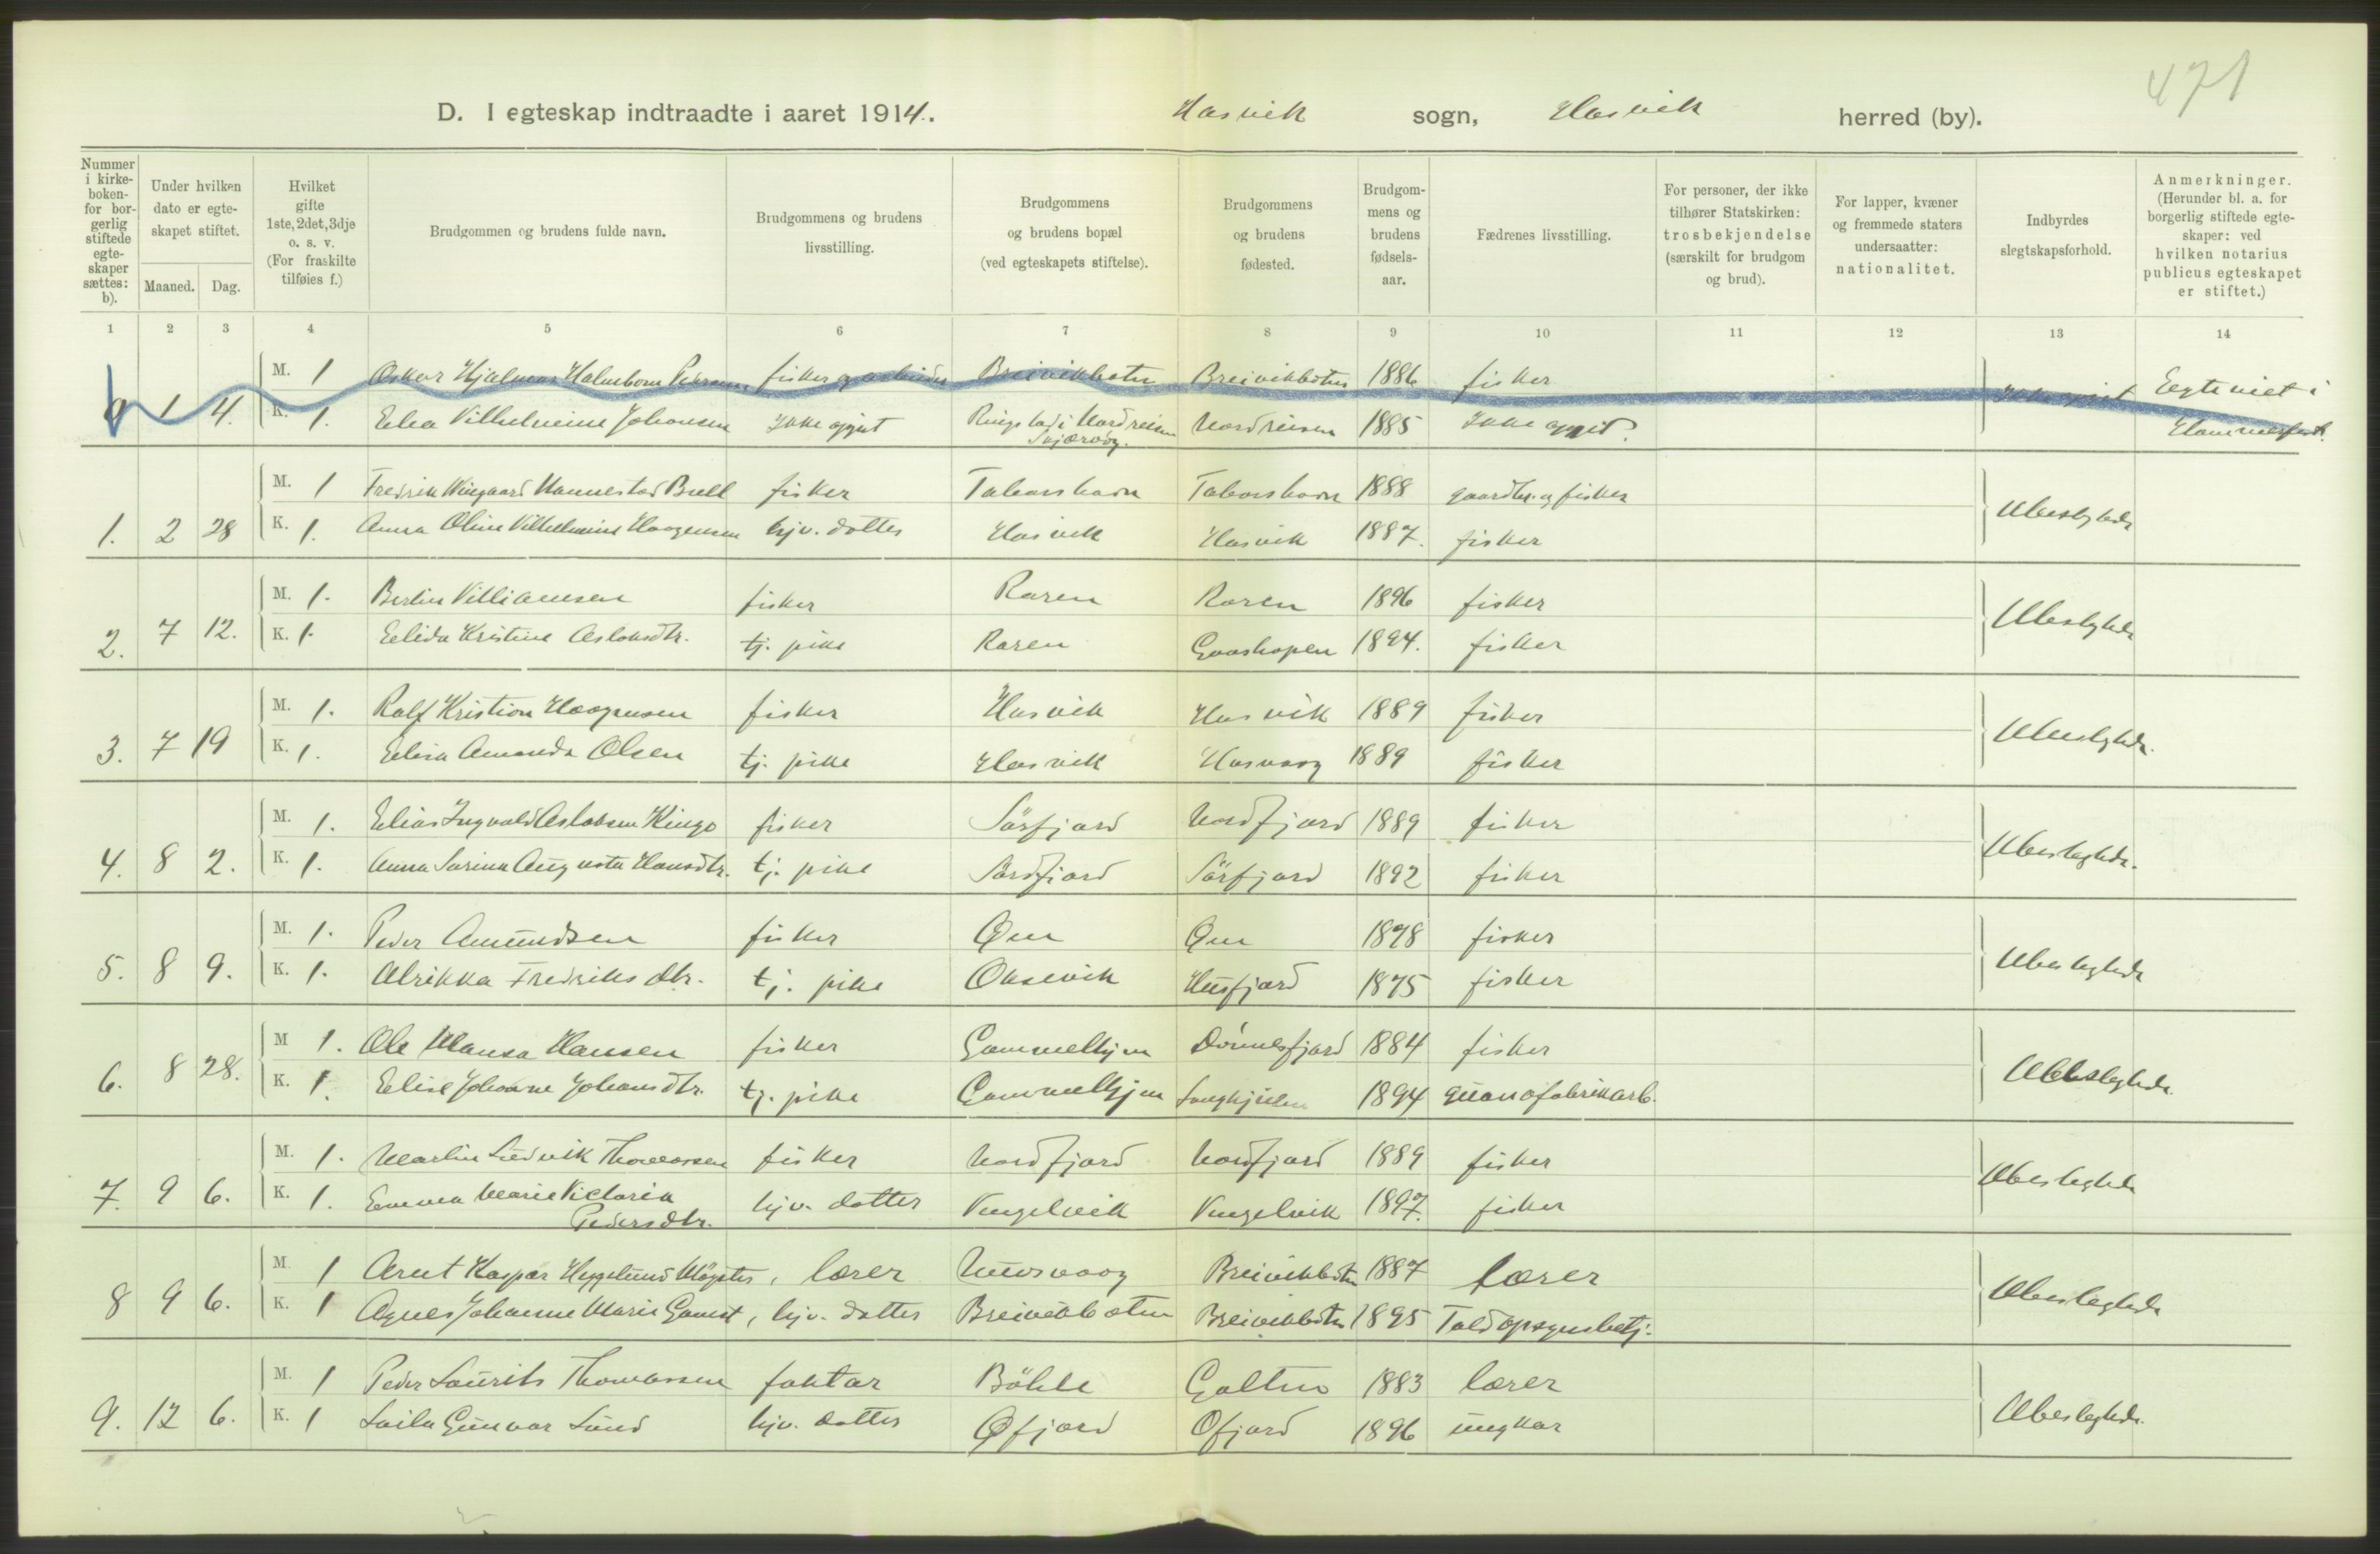 471
D. I egteskap indtraadte i aaret 1914. Hasvik sogn, Hasvik herred (by).
Nummer i kirke-boken- for bor-gerlig stiftede egte-skaper sættes: b).
Under hvilken dato er egte-skapet stiftet.
Maaned. Dag.
Hvilket gifte 1ste, 2det, 3dje o. s. v. (For fraskilte tilføies f.)
Brudgommen og brudens fulde navn.
Brudgommens og brudens livsstilling.
Brudgommens og brudens bopæl (ved egteskapets stiftelse).
Brudgommens og brudens fødested.
Brudgom-mens og brudens fødsels-aar.
Fædrenes livsstilling.
For personer, der ikke tilhører Statskirken: trosbekjendelse (særskilt for brudgom og brud).
For lapper, kvæner og fremmede staters undersaatter: nationalitet.
Indbyrdes slegtskapsforhold.
Anmerkninger. (Herunder bl. a. for borgerlig stiftede egte-skaper: ved hvilken notarius publicus egteskapet er stiftet.)
1 2 3 4 5 6 7 8 9 10 11 12 13 14
M. 1 Oskar Hjalmar fisker Breivikbotn Breivikbotn 1886 fisker
1 4. K. 1. Vilhelmine Johansen Ikke opgit Nordreisen Skjærvøy. Nordreisen 1885 Ikke opgit.
Egteviet i Hammerfest.
M. 1 Fredrik fisker 1888 gaardbr. og fisker
1. 2 28 K. 1. Anna Oline Vilhelmine hjv. datter Hasvik Hasvik 1887. fisker Ubeslegtede
M. 1. Berlin Villiamsen fisker Raren Raren 1896 fisker
2. 7 12. K. 1. Elida Kristine Aslaksdtr. tj. pike Raren Gaashopen 1894. fisker Ubeslegtede
M. 1. Ralf Kristian fisker Hasvik Hasvik 1889 fisker
3. 7 19 K. 1. Elisa Amanda Olsen tj. pike Hasvik Hasvaag 1889 fisker Ubeslegtede.
M. 1. Elias Ingvald Aslaksen fisker Sörfjord Nordfjord 1889 fisker
4. 8 2. K. 1. Anna Sarina Augusta Hansdtr. tj. pike Sörfjord 1892 fisker Ubeslegtede.
M. 1. Peder Amundsen fisker 1878 fisker
5. 8 9. K. 1. Ulrikka Fredriksdtr. tj. pike Oksevik Husfjord 1875 fisker Ubeslegtede
M 1. Ole Hansen fisker Dönnesfjord 1884 fisker
6. 8 28. K. 1. Elise Johanne Johansdtr. tj. pike 1894 guanofabrikarb. Ubeslegtede.
M. 1. Martin Ludvik Thomassen fisker Nordfjord Nordfjord 1889 fisker
7. 9 6. K. 1. Emma Marie Victoria Pedersdtr. hjv. datter Vengelvik Vengelvik 1897. fisker Ubeslegtede
M. 1 Arnt Kaspar lærer Breivikbotn 1887 lærer
8 9 6. K. 1 Agnes Johanne Marie hjv. datter Breivikbotn Breivikbotn 1895 Toldopsynsbetj. Ubeslegtede
M. 1 Peder Laurits Thomassen faktor Böhle Galten 1883 lærer
9. 12 6. K. 1 Laila Gunvor Lund hjv. datter Øfjord Öfjord 1896 ungkar Ubeslegtede.